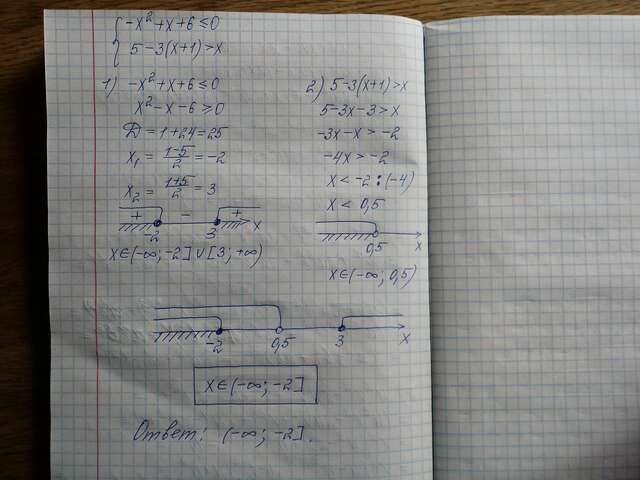 { -x² + x + 6 ≤ 0
5 - 3(x+1) > x
1) -x² + x + 6 ≤ 0
x² - x - 6 ≥ 0
D = 1 + 24 = 25
x₁ = (1-5)/2 = -2
x₂ = (1+5)/2 = 3
+ - + x
-2 3
x ∈ (-∞; -2] ∪ [3; +∞)
2) 5 - 3(x+1) > x
5 - 3x - 3 > x
-3x - x > -2
-4x > -2
x < -2 : (-4)
x < 0,5
0,5 x
x ∈ (-∞; 0,5)
-2 0,5 3 x
x ∈ (-∞; -2]
Ответ: (-∞; -2].